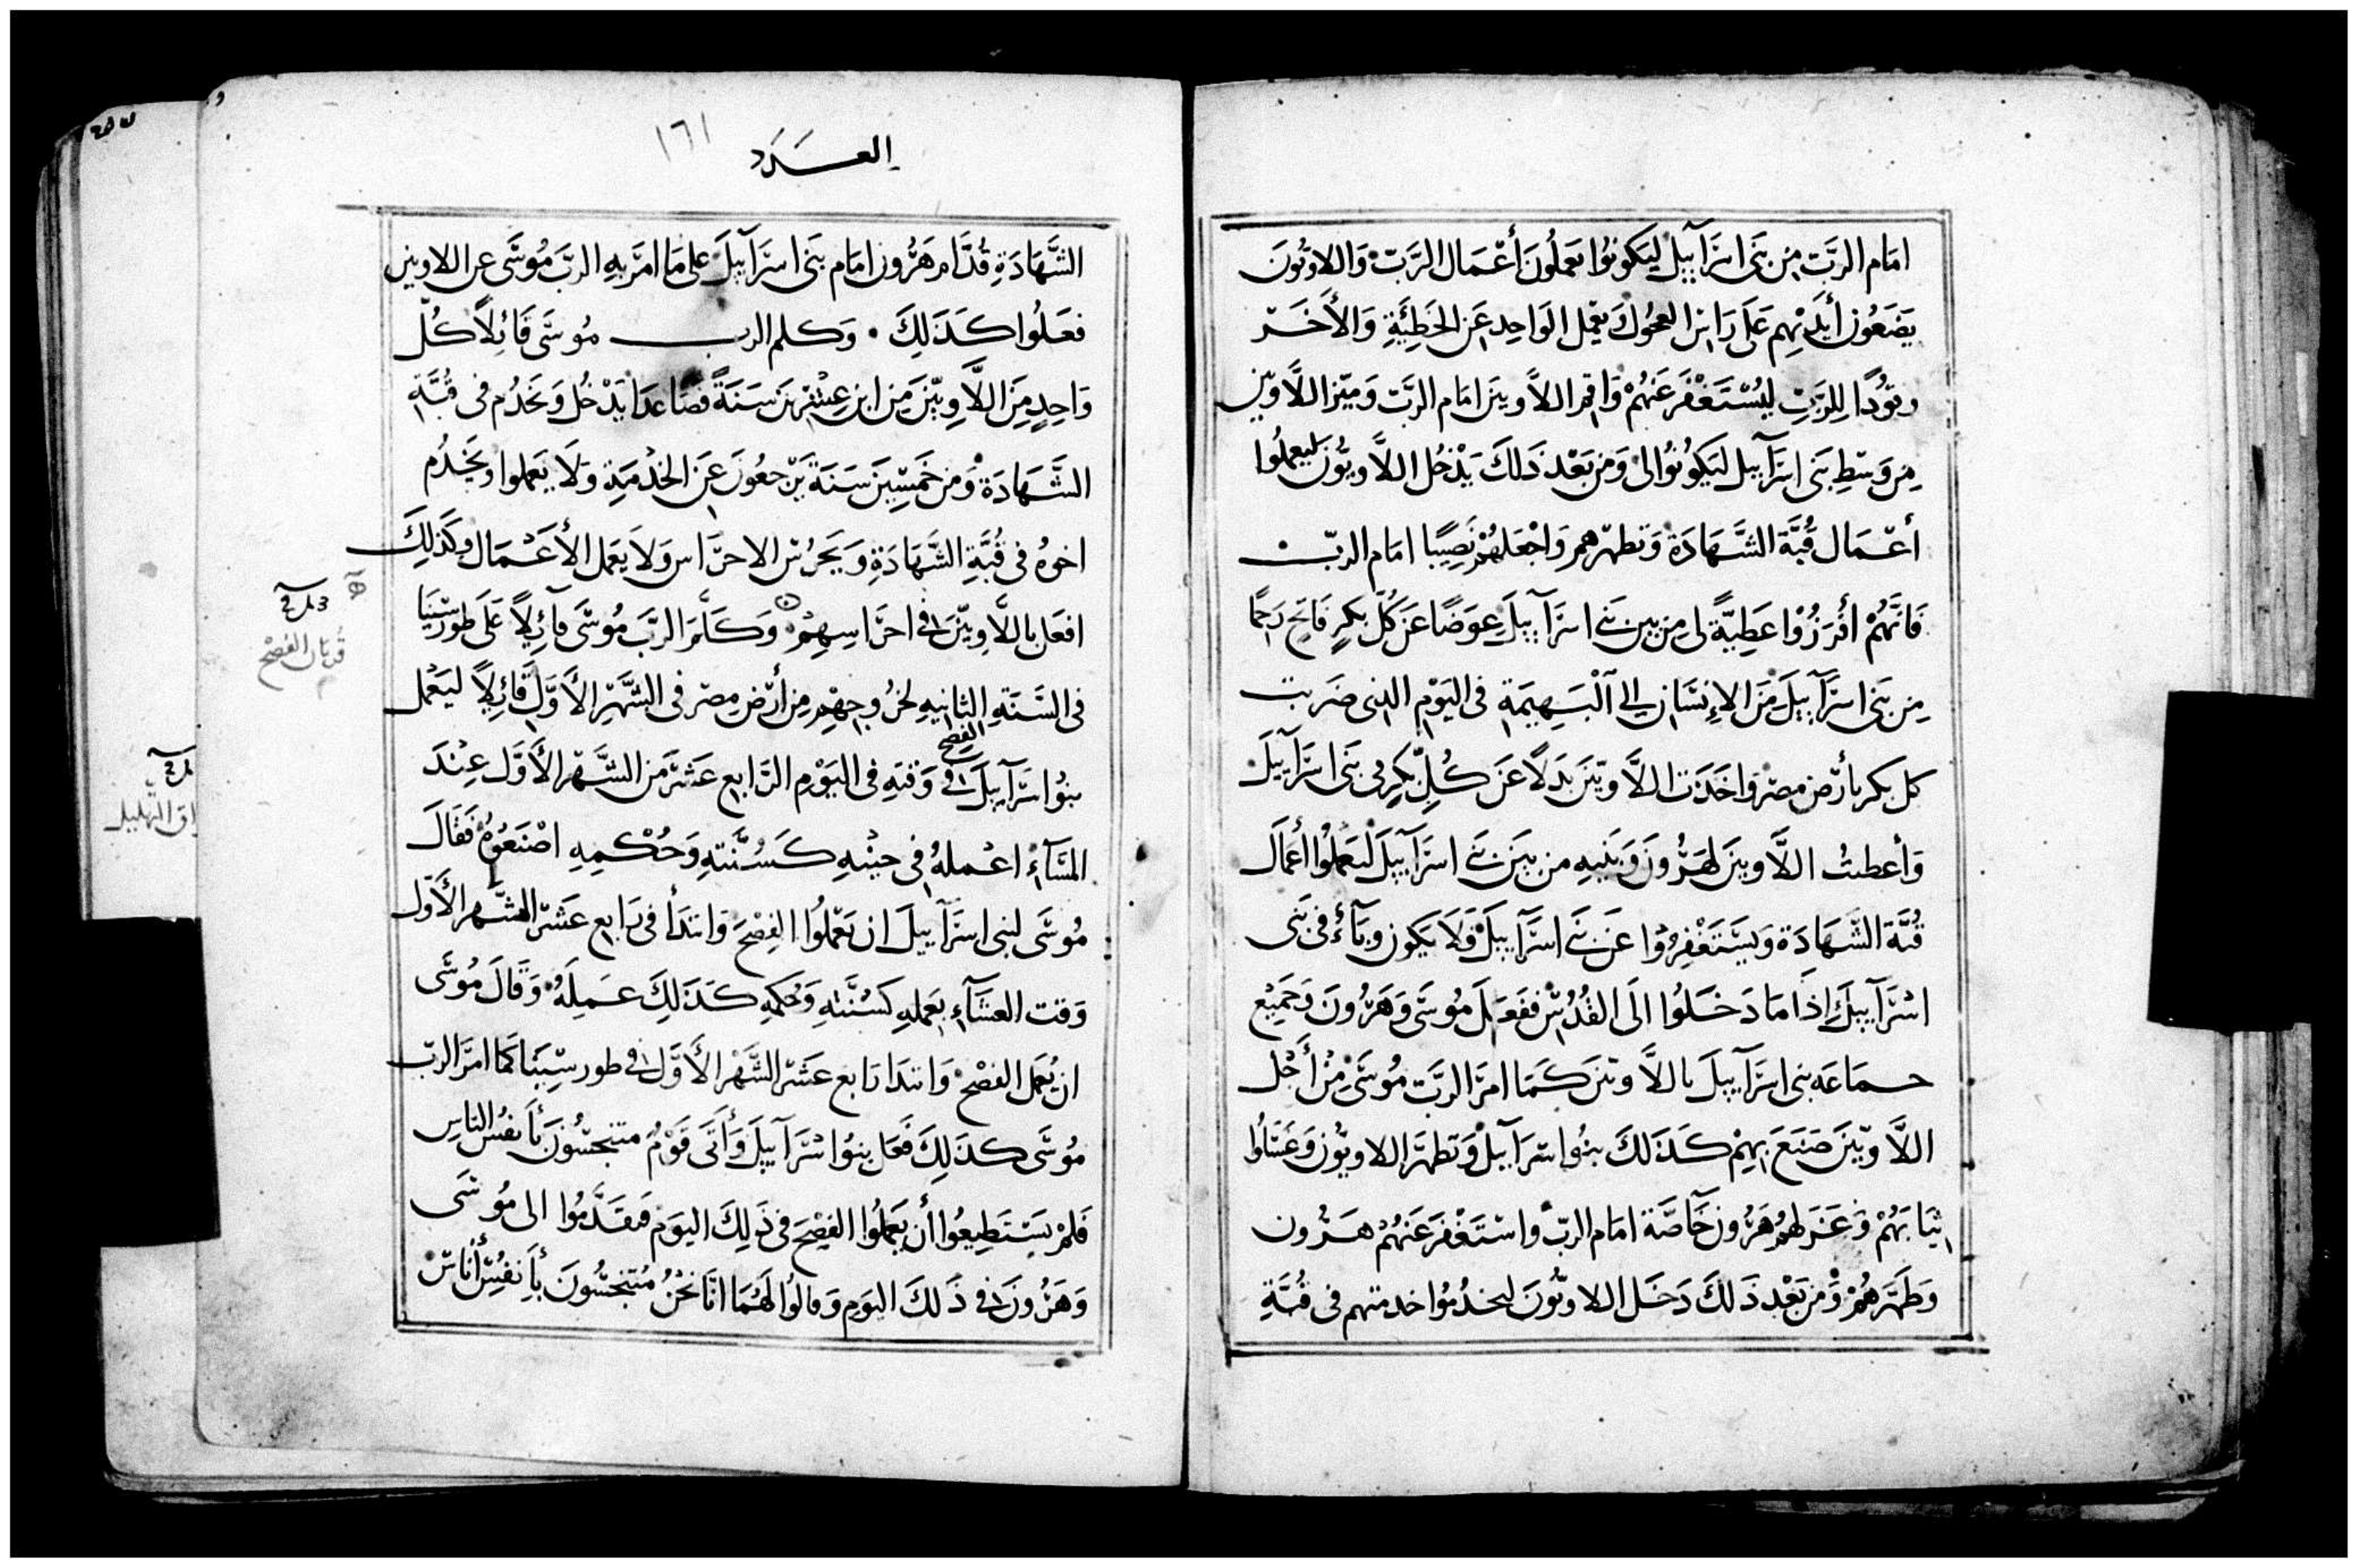 امَام الرَبّ مِن بَنى اسرَآييل ليَكونوُا يَعملُونَ أعْمَال الرَبّ وَاللاويُونَ
يَضَعُون أيدَيْهِم عَلى رَاس العجُول وَيعْمل الوَاحِد عَن الخَطِئَةِ وَالأخَر
وقوُدًا لِلرَبِّ ليُسْتَغْفَر عَنهُمْ وَاقِم اللاَّويينَ امَام الرَبّ وَميّز اللاَّويّين
مِن وَسْطِ بَنى اسرَآييل ليَكونوُا لى وَمن بَعْد ذَلكَ يَدْخُل اللاَّويّون ليعملوُا
أعْمَال قُبَّة الشَّهَادَة وَتطهّرهم وَاجْعَلهُمْ نَصِيبًا امَام الربّ
فَانَّهُمْ أُفرزُوْا عَطِيَّةً لى مِن بين بَنى اسرَآييلَ عِوَضًا عَن كُلّ بكرٍ فَاتِح رَحِمًا
مِن بَنى اسرَآييلَ مِنَ الإنسَان إلى البَهِيمَة فى اليَوْم الذى ضَرَبت
كل بكر بأرْض مصْر وَاخَذت اللاَّويّين بَدَلاً عَن كُلِّ بكرٍ فى بَنى اسرَآييلَ
وَأعطيتُ اللاَّويين لهَرُونَ وَبَنيهِ من بَين بَنى اسرَآييلَ ليَعملُوْا أعمَال
قُبَّة الشَّهَادَة وَيسْتَغْفِرُوْا عَن بَنى اسرَآييلَ وَلَا يَكون وبَآءٌ فى بَنى
اسْرَآييلَ إذَا مَا دَخَلُوا الَى القُدُس ففَعَلَ مُوسَى وَهَرُونَ وَجَمِيع
جماعَه بَنى اسرَآييلَ باللاَّويّين كَمَا امرَ الربّ مُوسَى مِنْ أجْل
اللاَّويّينَ صَنَعَ بِهِمْ كَذَلكَ بنُوا اسرَآييلْ وَتطهّرَ اللاويُّون وَغَسَلُوا
ثيَابَهُمْ وَعَزَلهُمْ هَرُون خَآصَّة امَام الربّ وَاسْتَغْفَرَ عَنهُمْ هَرُون
وَطَهَّرَهُمْ وَمن بَعْد ذَلكَ دَخَل اللاويُّونَ ليخدُمُوا خدمتهم فى قُبَّةِ
العَدَد
١٦١
الشَّهَادَةِ قُدَّام هَرُون امَام بَنى اسرَآييلَ على مَا امَرَ بهِ الربّ مُوسَى عن اللاويين
فعَلُوا كَذَلِكَ ٠ وَكلم الرب مُوسَى قَائلاً كُلّ
وَاحِدٍ مِنَ اللاَّويّينَ مِن ابن عِشْرين سَنَةً فصَاعدًا يَدْخُل وَيَخدُم فى قُبَّة
الشَّهَادَةْ وَمن خَمْسِينَ سَنَةً يَرْجعُونَ عَن الخدْمَةِ وَلَا يَعملوا وَيَخدُم
اخوهُ فى قُبَّةِ الشَّهَادَةِ وَيَحَرُس الاحرَاس وَلَا يَعمل الأعْمَال وكَذلِكَ
افعَل باللاَّويّينَ فى احرَاسِهِمْ وَكَلَّمَ الربّ مُوسَى قآئِلاً عَلى طور سِينَا
فى السَنَةِ الثانيهِ لخرُوجِهِم مِن أرْض مِصر فى الشَّهرِ الأوَّلِ قَائِلاً ليَعْمل
بنوُا اسرَآييلَ الفصح فى وَقتهِ فى اليَوْم الرَابع عَشرَ من الشَّهرِ الأوَّل عِنْدَ
المَسَآءِ اعْملهُ فى حينهِ كَسُنَّتهِ وَحُكْمِهِ اصْنَعُوْهُ فَقَالَ
مُوسَى لبنى اسرَآييلَ ان يَعْملُوا الفصْحَ وَابتدَأ فى رَابع عَشرَ الشَّهر الأَوّل
وَقت العشَآءِ يَعملهِ كَسُنَّتهِ وَحُكمِهِ كَذَلِكَ عَمِلَهُ وَقَالَ مُوسَى
ان يُعْمَل الفِصْح وَابتدَا رَابع عَشر الشَّهْرِ الأَوَّل فى طور سِّينَا كمَا امرَ الربّ
مُوسَى كذَلِكَ فَعَل بنوُا اسْرَآييلَ وَأتَى قَوْمٌ متنجسُّونَ بأَنفُس الناسِ
فَلمْ يَسْتَطِيعُوا أن يَعملُوا الفِصْحَ فى ذَلِكَ اليَوْم فتقَدَّمُوا الى مُوسَى
وَهَرُونَ فى ذَلكَ اليَوم وَقالُوا لَهُمَا انَّا نَحْنُ مُتنجسُّونَ بأَنفُسِ أُنَاسْ
قُربَان الفِصْح